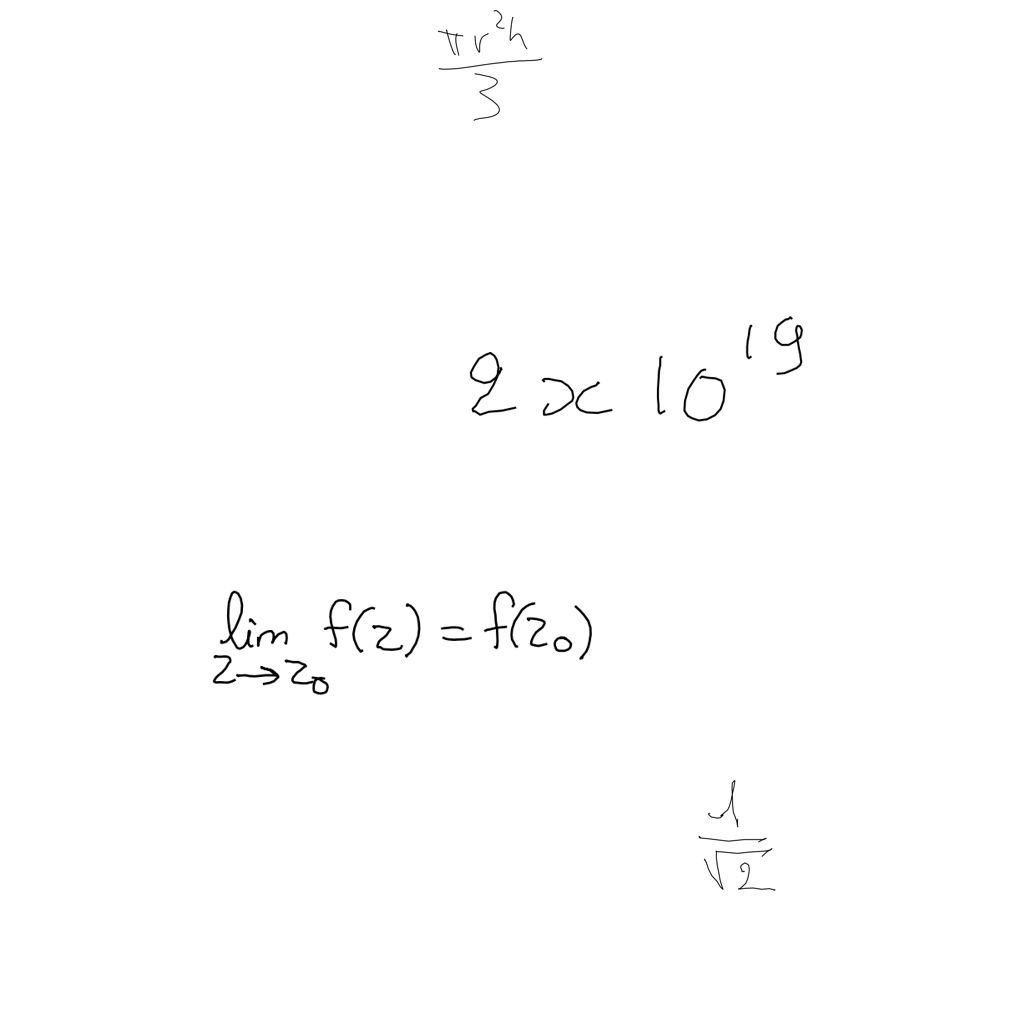 \frac{\pi r^2 h}{3}
2 \times 10^{19}
\lim_{z \to z_0} f(z) = f(z_0)
\frac{1}{\sqrt{2}}